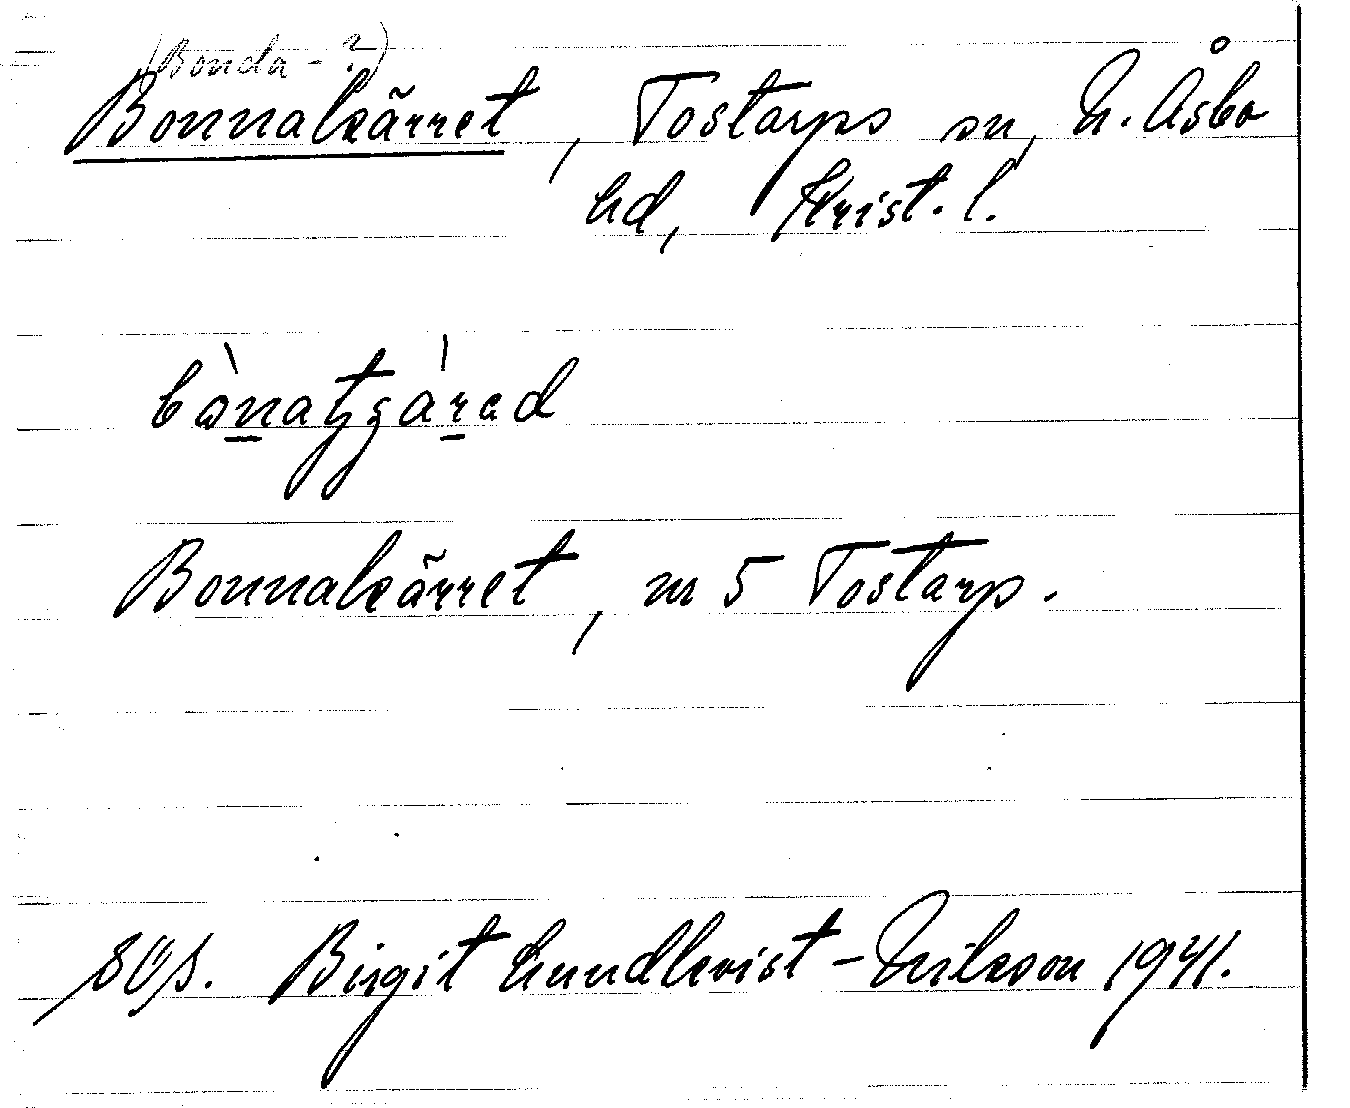 (Bonda-?)
Bonnakärret, Tostarps sn, N. Åsbo
hd, Krist. l.
Bonnakärret, nr 5 Tostarp.
Birgit Lundkvist-Nilsson 1941.